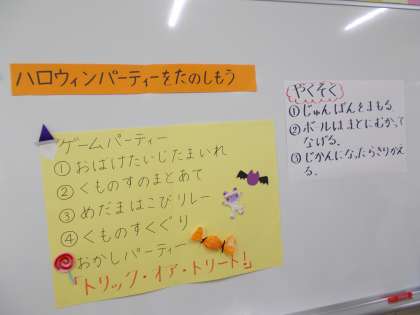 ハロウィンパーティーをたのしもう
ゲームパーティー
①おばけたいじたまいれ
②くものすのまとあて
③めだまはこびリレー
④くものすくぐり
おかしパーティー
「トリック・オア・トリート!」
やくそく
①じゅんばんをまもる。
②ボールはまとにむかって
なげる。
③じかんになったらきりかえ
る。